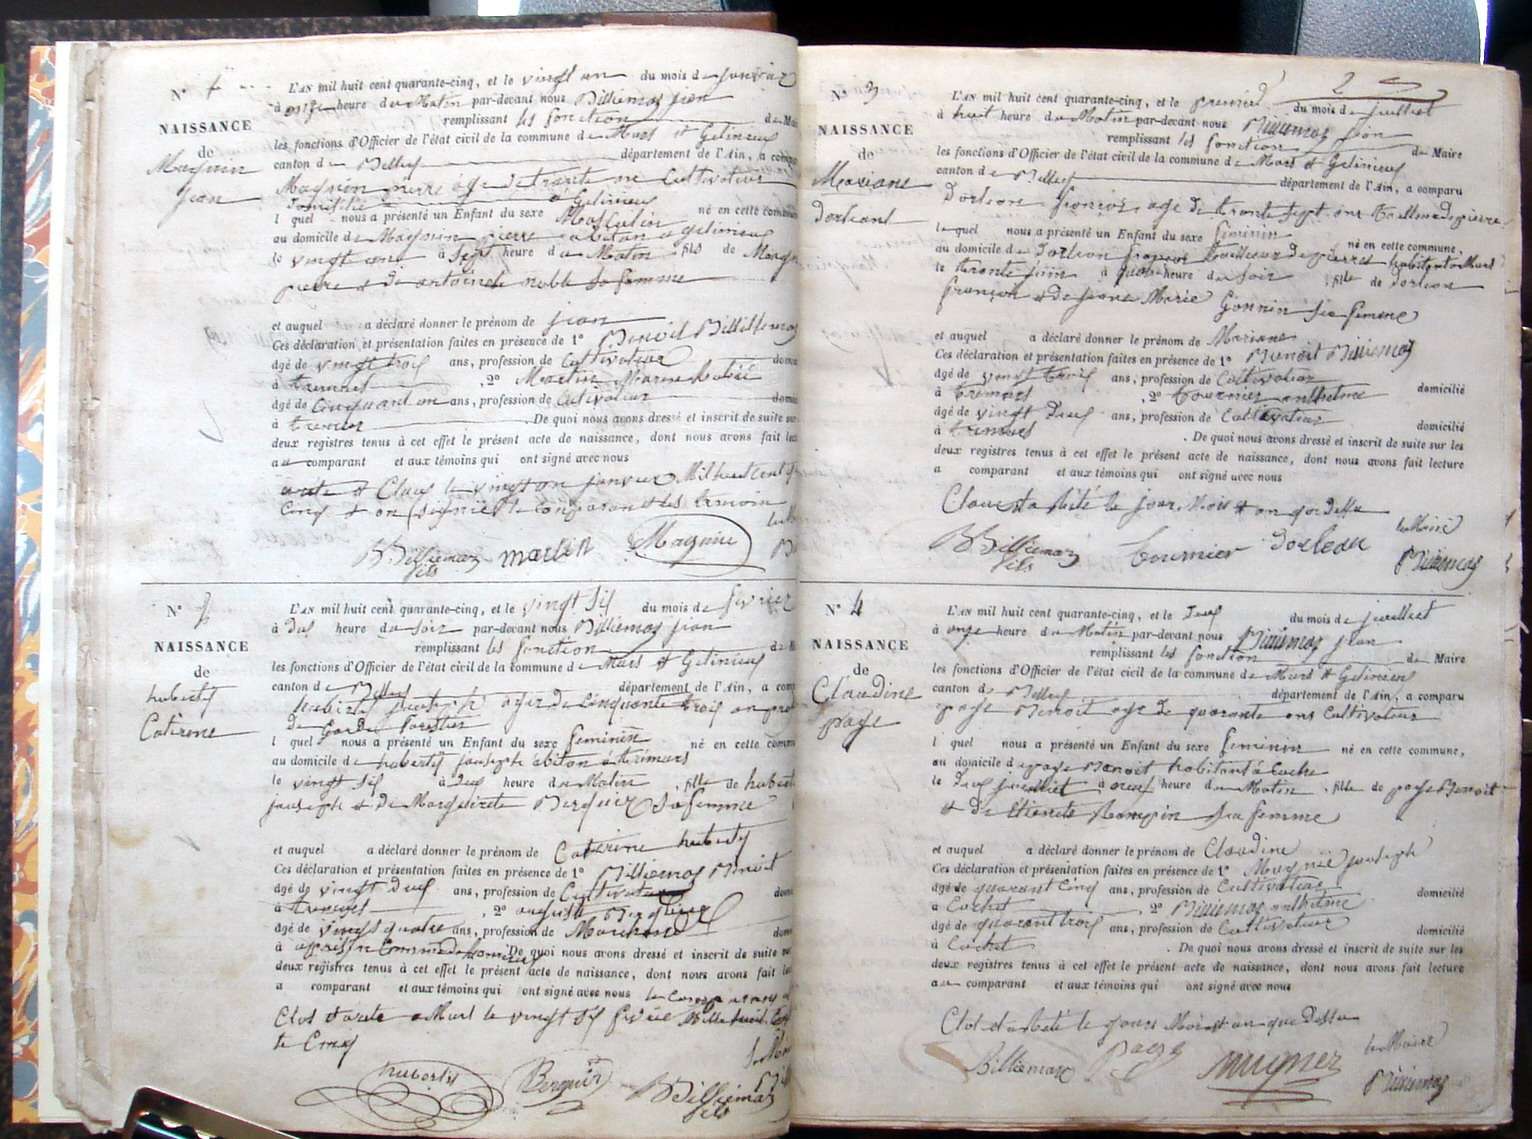 N° 1
NAISSANCE
de
Magnin
Jean
L'AN mil huit cent quarante-cinq, et le vingt un du mois de janvier
à onze heure du Matin par-devant nous Billiemaz jean
remplissant les fonction de Mai
les fonctions d'Officier de l'état civil de la commune de Murs et Gelinieux
canton de Belley département de l'Ain, a compa
Magnin pierre age de trante ans Cultivateur
domicilié a Gelineux
l quel nous a présenté un Enfant du sexe Masculin né en cette commun
au domicile de Magnin pierre abitan a gelineux
le vingt une à sept heure du Matin fils de Magn
pierre et de antoinete noble sa femme
et auquel a déclaré donner le prénom de jean
Ces déclaration et présentation faites en présence de 1° Benoit Billiemaz
âgé de vingt trois ans, profession de Cultivateur domi
à 2° Martin
âgé de Cinquant ans, profession de Cultivateur domi
à . De quoi nous avons dressé et inscrit de suite sur
deux registres tenus à cet effet le présent acte de naissance, dont nous avons fait lec
au comparant et aux témoins qui ont signé avec nous
le vingt un janvier Mil huit Cent q
Cinq et on signié le comparant et les temoin
BBilliemaz fils martin Magnin
N° 2
NAISSANCE
de
hubertis
Catirene
L'AN mil huit cent quarante-cinq, et le vingt sis du mois de fevrier
à dus heure du soir par-devant nous Billiemaz jean
remplissant les fonction de M
les fonctions d'Officier de l'état civil de la commune de Murs et Gelinieux
canton de Belley département de l'Ain, a com
hubertis jauseph agez de Cinquante trois an
de Garde forestier
l quel nous a présenté un Enfant du sexe feminin né en cette commu
au domicile de hubertis jauseph abiton a
le vingt sis à dus heure du Matin , fille de hubert
jauseph et de Marguerete Berguier sa femme
et auquel a déclaré donner le prénom de Catirine hubertis
Ces déclaration et présentation faites en présence de 1° Billiemaz Benoit
âgé de vingt deus ans, profession de Cultivateur domi
à , 2° auguste
âgé de vingt quatre ans, profession de Marchand domi
à De quoi nous avons dressé et inscrit de suite sur
deux registres tenus à cet effet le présent acte de naissance, dont nous avons fait lec
a comparant et aux témoins qui ont signé avec nous le comparant
Clos et arete a Murs le vingt sis
te Cinq
hubertis Berguier BBilliemaz fils
2
N° 3
NAISSANCE
de
Mariane
Dorleans
L'AN mil huit cent quarante-cinq, et le premier du mois de juilliet
à huit heure du Matin par-devant nous Billiemaz jean
remplissant les fonction de Maire
les fonctions d'Officier de l'état civil de la commune de Murs et Gelinieux
canton de Belley département de l'Ain, a comparu
Dorlean françois age de trente sept ans tailleur de pierre
le quel nous a présenté un Enfant du sexe feminin né en cette commune,
au domicile de Dorlean françois tailleur de pierre habitant a Murs
le trente juin à heure du soir , fille de Dorlean
françois et de jeane Marie Gonnin sa femme
et auquel a déclaré donner le prénom de Mariane
Ces déclaration et présentation faites en présence de 1° Benoit Billiemaz
âgé de vingt trois ans, profession de Cultivateur domicilié
à , 2° tournier anthelme
âgé de vingt deus ans, profession de Cultivateur domicilié
à . De quoi nous avons dressé et inscrit de suite sur les
deux registres tenus à cet effet le présent acte de naissance, dont nous avons fait lecture
a comparant et aux témoins qui ont signé avec nous
Clos et areté le jour, Mois et an que Dessu
BBilliemaz fils tournier dorlean le Maire
Billiemaz
N° 4
NAISSANCE
de
Claudine
page
L'AN mil huit cent quarante-cinq, et le deus du mois de juilliet
à onze heure du Matin par-devant nous Billiemaz jean
remplissant les fonction de Maire
les fonctions d'Officier de l'état civil de la commune de Murs et Gelinieux
canton de Belley département de l'Ain, a comparu
page Benoit age de quarante ans Cultivateur
l quel nous a présenté un Enfant du sexe feminin né en cette commune,
au domicile de page Benoit habitant à Cache
le deus juilliet à heure du Matin , fille de page Benoit
et de sa femme
et auquel a déclaré donner le prénom de Claudine
Ces déclaration et présentation faites en présence de 1° Mugnié jauseph
âgé de quarant Cinq ans, profession de Cultivateur domicilié
à Cachet , 2° Billiemaz anthelme
âgé de quarant trois ans, profession de Cultivateur domicilié
à Cachet . De quoi nous avons dressé et inscrit de suite sur les
deux registres tenus à cet effet le présent acte de naissance, dont nous avons fait lecture
au comparant et aux témoins qui ont signé avec nous
Clot et areté le jour Mois et an que Dessu
Billiemaz page mugnier le Maire
Billiemaz